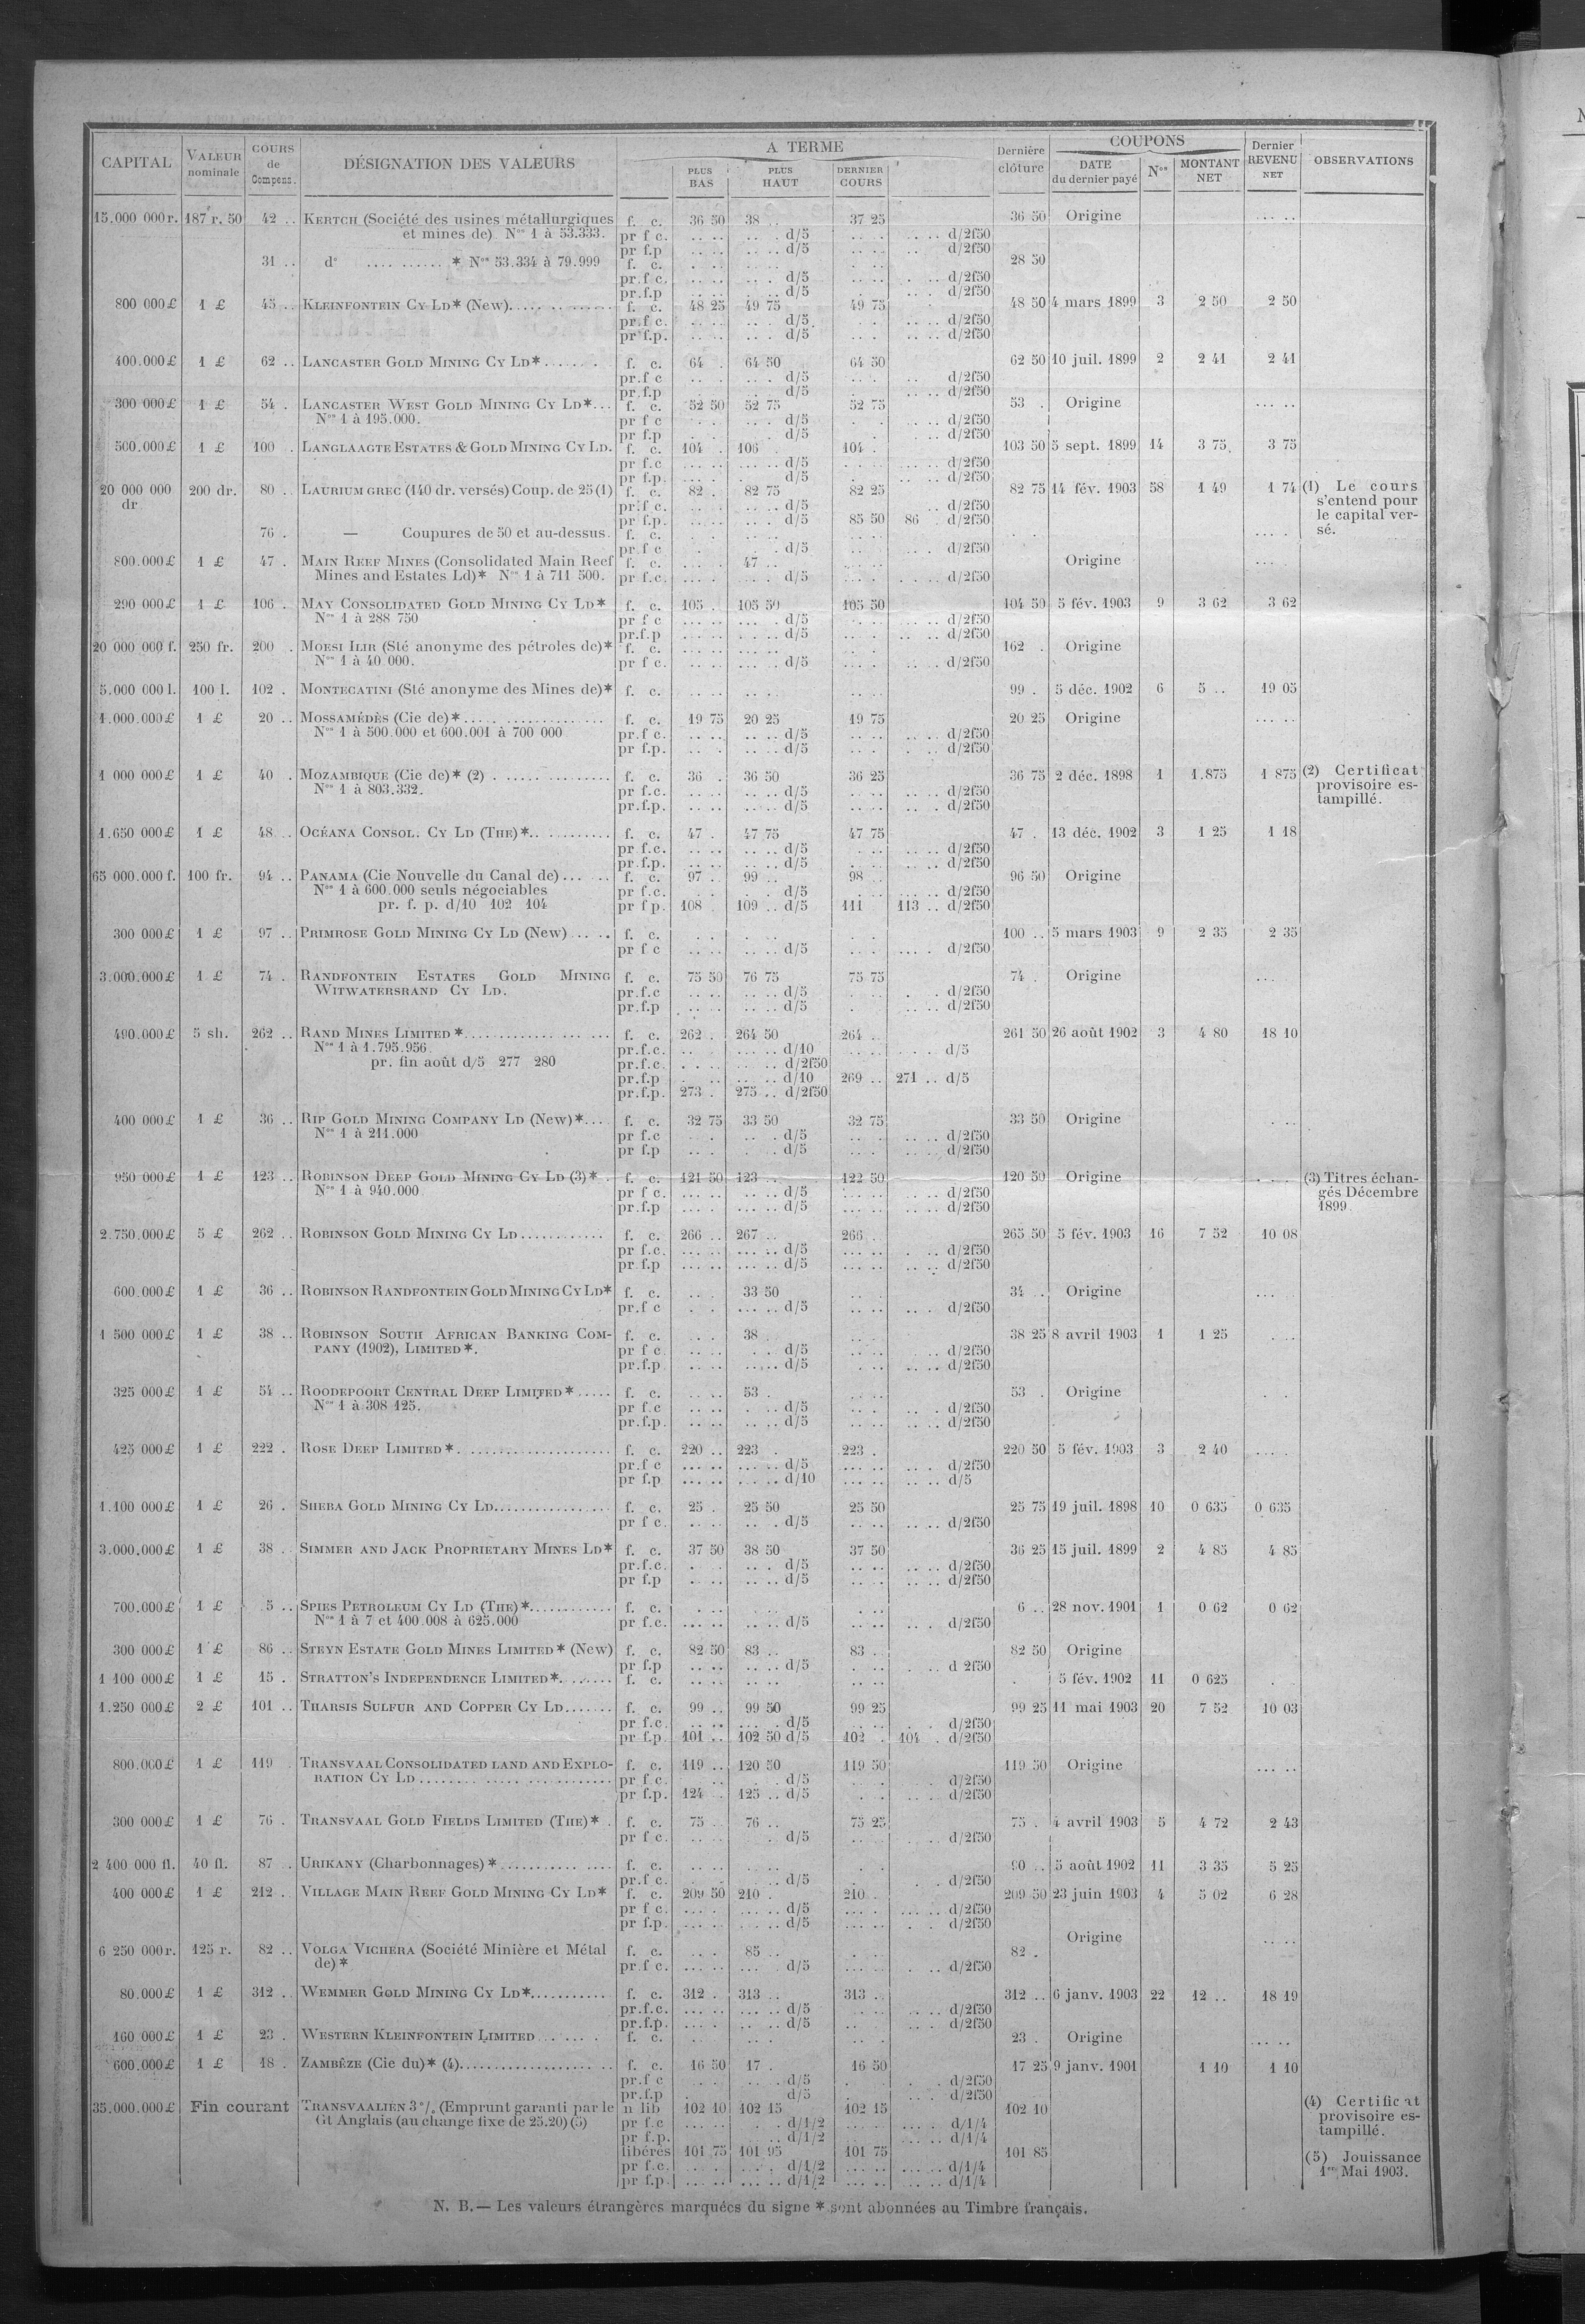 CAPITAL | VALEUR nominale | COURS de Compens. | DÉSIGNATION DES VALEURS | A TERME | PLUS BAS | PLUS HAUT | DERNIER COURS | Dernière clôture | COUPONS | DATE du dernier payé | Nos | MONTANT NET | Dernier REVENU NET | OBSERVATIONS
15.000 000r. 187 r. 50 42 .. KERTCH (Société des usines métallurgiques f. c. 36 50 38 .. 37 25 36 50 Origine
et mines de) Nos 1 à 53.333. pr f c. d/5 d/2f50
pr f.p d/5 d/2f50
31 .. do .......... * Nos 53.334 à 79.999 f. c. 28 50
pr.f c. d/5 d/2f50
pr.f.p d/5 d/2f50
800 000£ 1 £ 45 .. KLEINFONTEIN CY LD* (New) f. c. 48 25 49 75 49 75 48 50 4 mars 1899 3 2 50 2 50
pr.f c. d/5 d/2f50
pr f.p. d/5 d/2f50
400.000£ 1 £ 62 .. LANCASTER GOLD MINING CY LD* f. c. 64 . 64 50 64 50 62 50 10 juil. 1899 2 2 41 2 41
pr.f c d/5 d/2f50
pr.f.p d/5 d/2f50
300 000£ 1 £ 54 . LANCASTER WEST GOLD MINING CY LD* f. c. 52 50 52 75 52 75 53 . Origine
Nos 1 à 195.000. pr f c d/5 d/2f50
pr f.p d/5 d/2f50
500.000£ 1 £ 100 . LANGLAAGTE ESTATES & GOLD MINING CY LD. f. c. 104 . 106 . 104 . 103 50 5 sept. 1899 14 3 75 3 75
pr f.c d/5 d/2f50
pr f.p. d/5 d/2f50
20 000 000 dr 200 dr. 80 .. LAURIUM GREC (140 dr. versés) Coup. de 25 (1) f. c. 82 . 82 75 82 25 82 75 14 fév. 1903 58 1 49 1 74 (1) Le cours
pr.f c. d/5 d/2f50 s'entend pour
pr f.p. d/5 85 50 86 . d/2f50 le capital ver-
76 . — Coupures de 50 et au-dessus. f. c. sé.
pr.f c d/5 d/2f50
800.000£ 1 £ 47 . MAIN REEF MINES (Consolidated Main Reef f. c. 47 .. Origine
Mines and Estates Ld)* Nos 1 à 711 500. pr f.c. d/5 d/2f50
290 000£ 1 £ 106 . MAY CONSOLIDATED GOLD MINING CY LD* f. c. 105 . 105 50 105 50 104 50 5 fév. 1903 9 3 62 3 62
Nos 1 à 288 750 pr f c d/5 d/2f50
pr.f.p d/5 d/2f50
20 000 000 f. 250 fr. 200 . MOESI ILIR (Sté anonyme des pétroles de)* f. c. 162 . Origine
Nos 1 à 40 000. pr f c. d/5 d/2f50
5.000 000 l. 100 l. 102 . MONTECATINI (Sté anonyme des Mines de)* f. c. 99 . 5 déc. 1902 6 5 .. 19 05
1.000.000£ 1 £ 20 .. MOSSAMÉDÈS (Cie de)* f. c. 19 75 20 25 19 75 20 25 Origine
Nos 1 à 500.000 et 600.001 à 700 000 pr.f c. d/5 d/2f50
pr f.p. d/5 d/2f50
1 000 000£ 1 £ 40 . MOZAMBIQUE (Cie de)* (2) f. c. 36 . 36 50 36 25 36 75 2 déc. 1898 1 1.875 1 875 (2) Certificat
Nos 1 à 803.332. pr f.c. d/5 d/2f50 provisoire es-
pr.f.p. d/5 d/2f50 tampillé.
1.650 000£ 1 £ 48 .. OCÉANA CONSOL. CY LD (THE)* f. c. 47 . 47 75 47 75 47 . 13 déc. 1902 3 1 25 1 18
pr f.c. d/5 d/2f50
pr.f.p. d/5 d/2f50
65 000.000 f. 100 fr. 94 .. PANAMA (Cie Nouvelle du Canal de) f. c. 97 .. 99 .. 98 .. 96 50 Origine
Nos 1 à 600.000 seuls négociables pr f.c. d/5 d/2f50
pr. f. p. d/10 102 104 pr f p. 108 109 .. d/5 111 113 .. d/2f50
300 000£ 1 £ 97 .. PRIMROSE GOLD MINING CY LD (New) f. c. 100 .. 5 mars 1903 9 2 35 2 35
pr f c d/5 d/2f50
3.000.000£ 1 £ 74 . RANDFONTEIN ESTATES GOLD MINING f. c. 75 50 76 75 75 75 74 . Origine
WITWATERSRAND CY LD. pr.f.c d/5 d/2f50
pr.f.p d/5 d/2f50
490.000£ 5 sh. 262 .. RAND MINES LIMITED* f. c. 262 . 264 50 264 .. 261 50 26 août 1902 3 4 80 18 10
Nos 1 à 1.795.956. pr.f.c. d/10 d/5
pr. fin août d/5 277 280 pr.f.c. d/2f50
pr.f.p d/10 269 .. 271 .. d/5
pr.f.p. 273 . 275 .. d/2f50
400 000£ 1 £ 36 .. RIP GOLD MINING COMPANY LD (New)* f. c. 32 75 33 50 32 75 33 50 Origine
Nos 1 à 211.000 pr f.c d/5 d/2f50
pr f.p d/5 d/2f50
950 000£ 1 £ 123 .. ROBINSON DEEP GOLD MINING CY LD (3)* f. c. 121 50 123 .. 122 50 120 50 Origine (3) Titres échan-
Nos 1 à 940.000 pr f c. d/5 d/2f50 gés Décembre
pr.f.p d/5 d/2f50 1899.
2.750.000£ 5 £ 262 .. ROBINSON GOLD MINING CY LD f. c. 266 .. 267 .. 266 .. 265 50 5 fév. 1903 16 7 52 10 08
pr f.c. d/5 d/2f50
pr.f.p d/5 d/2f50
600.000£ 1 £ 36 .. ROBINSON RANDFONTEIN GOLD MINING CY LD* f. c. 33 50 34 .. Origine
pr.f c d/5 d/2f50
1 500 000£ 1 £ 38 .. ROBINSON SOUTH AFRICAN BANKING COM- f. c. 38 . 38 25 8 avril 1903 1 1 25
PANY (1902), LIMITED*. pr f c. d/5 d/2f50
pr.f.p d/5 d/2f50
325 000£ 1 £ 54 .. ROODEPOORT CENTRAL DEEP LIMITED* f. c. 53 . 53 . Origine
Nos 1 à 308 125. pr f.c d/5 d/2f50
pr.f.p. d/5 d/2f50
425 000£ 1 £ 222 . ROSE DEEP LIMITED* f. c. 220 .. 223 . 223 . 220 50 5 fév. 1903 3 2 40
pr.f c d/5 d/2f50
pr f.p d/10 d/5
1.100 000£ 1 £ 26 . SHEBA GOLD MINING CY LD f. c. 25 . 25 50 25 50 25 75 19 juil. 1898 10 0 635 0 635
pr f c. d/5 d/2f50
3.000.000£ 1 £ 38 . SIMMER AND JACK PROPRIETARY MINES LD* f. c. 37 50 38 50 37 50 36 25 15 juil. 1899 2 4 85 4 85
pr.f.c. d/5 d/2f50
pr f.p d/5 d/2f50
700.000£ 1 £ 5 .. SPIES PETROLEUM CY LD (THE)* f. c. 6 .. 28 nov. 1901 1 0 62 0 62
Nos 1 à 7 et 400.008 à 625.000 pr f.c. d/5 d/2f50
300 000£ 1 £ 86 .. STEYN ESTATE GOLD MINES LIMITED* (New) f. c. 82 50 83 .. 83 . 82 50 Origine
pr f.p d/5 d 2f50
1 100 000£ 1 £ 15 . STRATTON'S INDEPENDENCE LIMITED* f. c. 5 fév. 1902 11 0 625
1.250 000£ 2 £ 101 .. THARSIS SULFUR AND COPPER CY LD f. c. 99 .. 99 50 99 25 99 25 11 mai 1903 20 7 52 10 03
pr f.c. d/5 d/2f50
pr f.p. 101 .. 102 50 d/5 102 . 104 . d/2f50
800.000£ 1 £ 119 TRANSVAAL CONSOLIDATED LAND AND EXPLO- f. c. 119 .. 120 50 119 50 119 50 Origine
RATION CY LD pr f c. d/5 d/2f50
pr f.p. 124 . 125 .. d/5 d/2f50
300 000£ 1 £ 76 . TRANSVAAL GOLD FIELDS LIMITED (THE)* f. c. 75 . 76 .. 75 25 75 . 4 avril 1903 5 4 72 2 43
pr f c. d/5 d/2f50
2 400 000 fl. 40 fl. 87 .. URIKANY (Charbonnages)* f. c. 90 .. 5 août 1902 11 3 35 5 25
pr.f c. d/5 d/2f50
400 000£ 1 £ 212 . VILLAGE MAIN REEF GOLD MINING CY LD* f. c. 209 50 210 . 210 . 209 50 23 juin 1903 4 5 02 6 28
pr f c. d/5 d/2f50
pr f.p. d/5 d/2f50
6 250 000r. 125 r. 82 .. VOLGA VICHERA (Société Minière et Métal f. c. 85 .. 82 . Origine
de)* pr.f c. d/5 d/2f50
80.000£ 1 £ 312 .. WEMMER GOLD MINING CY LD* f. c. 312 . 313 .. 313 .. 312 .. 6 janv. 1903 22 12 .. 18 19
pr.f.c. d/5 d/2f50
pr.f.p. d/5 d/2f50
160 000£ 1 £ 23 . WESTERN KLEINFONTEIN LIMITED f. c. 23 . Origine
600.000£ 1 £ 18 . ZAMBÈZE (Cie du)* (4) f. c. 16 50 17 . 16 50 17 25 9 janv. 1901 1 10 1 10
pr.f c d/5 d/2f50
pr.f.p d/5 d/2f50
35.000.000£ Fin courant TRANSVAALIEN 3 % (Emprunt garanti par le n lib 102 10 102 15 102 15 102 10 (4) Certificat
Gt Anglais (au change fixe de 25.20) (5) pr f.c d/1/2 d/1/4 provisoire es-
pr f.p. d/1/2 d/1/4 tampillé.
libérés 101 75 101 95 101 75 101 85 (5) Jouissance
pr f.c. d/1/2 d/1/4 1er Mai 1903.
pr f.p. d/1/2 d/1/4
N. B. — Les valeurs étrangères marquées du signe * sont abonnées au Timbre français.